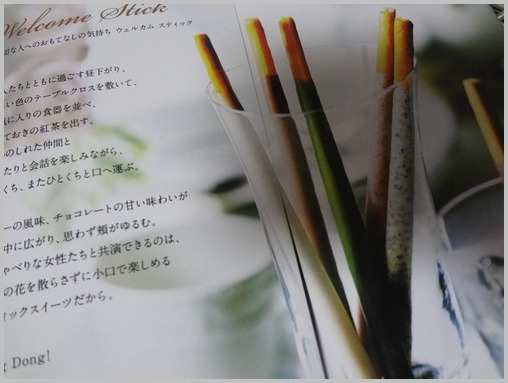 Welcome Stick
切な人へのおもてなしの気持ち ウェルカム スティック
人たちとともに過ごす昼下がり。
い色のテーブルクロスを敷いて、
に入りの食器を並べ、
ておきの紅茶を出す。
のしれた仲間と
たりと会話を楽しみながら、
くち、またひとくちと口へ運ぶ。
ーの風味、チョコレートの甘い味わいが
中に広がり、思わず頬がゆるむ。
ゃべりな女性たちと共演できるのは、
の花を散らさずに小口で楽しめる
ィックスイーツだから。
g Dong!